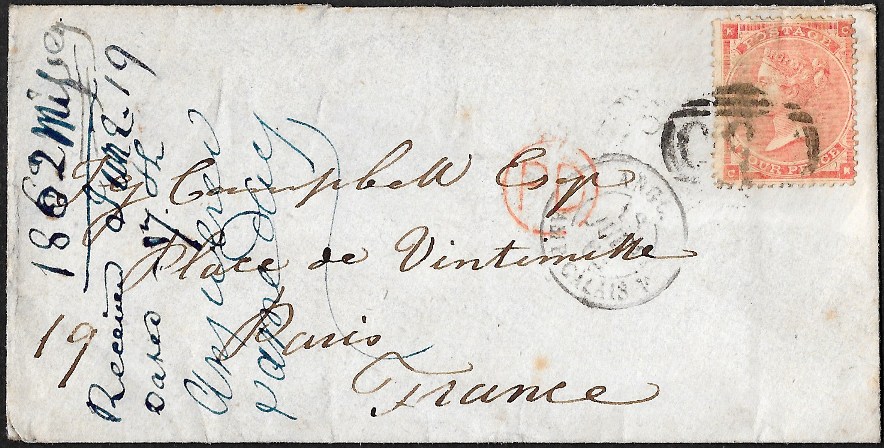 Fy Campbell Esq
19 Place de Vintimille
Paris
France
1862
Received June 19
Dated 17th
Answered
same day
PD
ANGL.
CALAIS
POSTAGE
FOUR PENCE